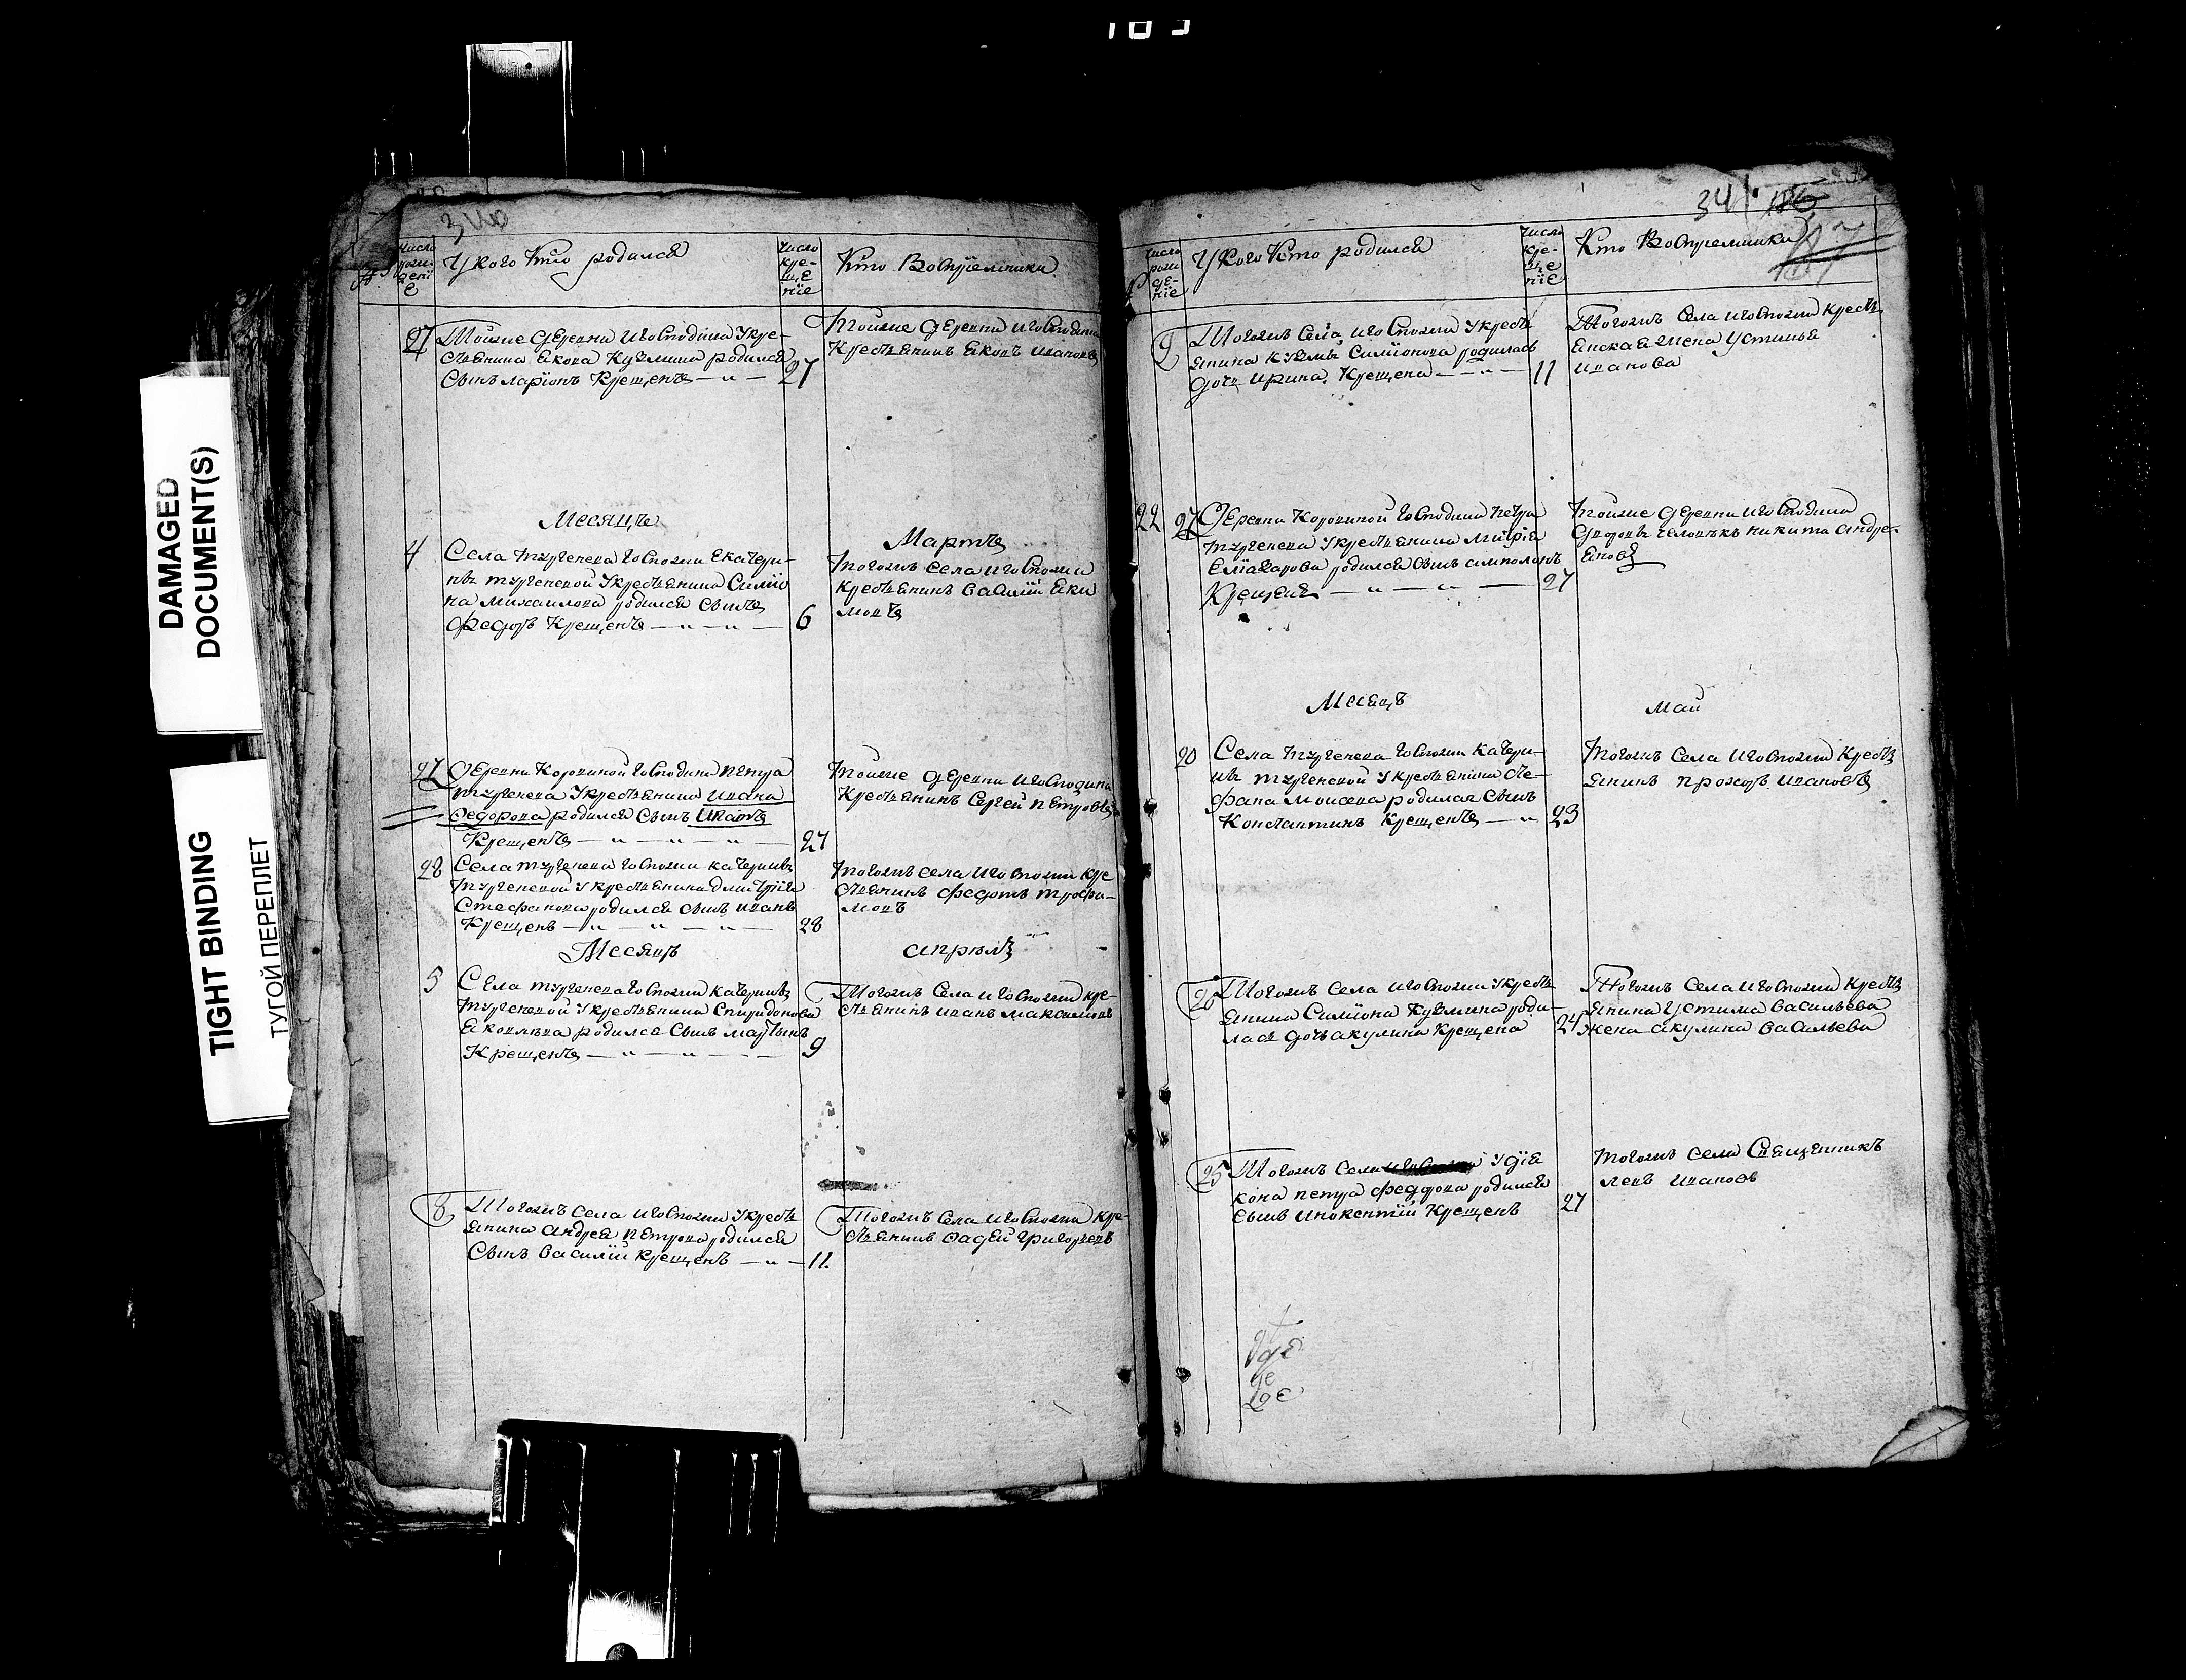 DAMAGED
DOCUMENT(S)
TIGHT BINDING
ТУГОЙ ПЕРЕПЛЕТ
Число
рож-
дені
е
У кого кто родился
Число
кре-
ще
ніе
Кто Восприемники
27 Тойже деревни и господина у кре-
стьянина Якова Кузмина родился
Сынъ Ларіонъ Крещенъ — „ — 27
Тойже деревни и господина
Крестьянинъ Яковъ Ивановъ
Месяцъ
Мартъ
4 Села Тургенева госпожи Екатери-
ны Тургеневой у крестьянина Симіо
на Михаилова родился Сынъ
Федоръ Крещенъ — „ — „ — 6
Тогожъ Села и госпожи
Крестьянинъ Василій Яки
мовъ
27 Деревни Коровиной господина Петра
Тургенева у крестьянина Ивана
Федорова родился Сынъ Ипатъ
Крещенъ — „ — „ — „ — 27
Тойже деревни и господина
Крестьянинъ Сергей Петровъ
28 Села Тургенева госпожи Катерины
Тургеневой у крестьянина Дмитрія
Стефанова родился Сынъ Иванъ
Крещенъ — „ — „ — „ — 28
Тогожъ Села и госпожи кре
стьянинъ Федотъ Трофи-
мовъ
Месяцъ
Апрель
5 Села Тургенева госпожи Катерины
Тургеневой у крестьянина Спиридона
Яковлева родился Сынъ Мартынъ
Крещенъ — „ — „ — 9
Тогожъ Села и госпожи кре-
стьянинъ Иванъ Максимовъ
8 Тогожъ Села и госпожи у кресть
янина Андрея Петрова родился
Сынъ Василій Крещенъ — „ — 11.
Тогожъ Села и госпожи кре-
стьянинъ Фадей Григорьевъ
34
Число
рож
де-
ніе
У кого Кто родился
Число
кре-
ще
ніе
Кто Восприемники
9 Тогожъ Села и госпожи у кресть
янина Кузмы Симіонова родилась
Дочь Ирина Крещена — „ — 11
Тогожъ Села и госпожи Кресть
янская жена Устинья
Иванова
22 27 Деревни Коровиной господина Петра
Тургенева у крестьянина
родился Сынъ
Крещенъ — „ — „ — 27
Тойже деревни и господина
Дворовъ человекъ Никита Андре-
яновъ
Месяцъ
Май
20 Села Тургенева госпожи Катери-
ны Тургеневой у крестьянина Сте-
фана Моисеева родился Сынъ
Константинъ Крещенъ — „ 23
Тогожъ Села и госпожи Кресть
янинъ Прохоръ Ивановъ
20 Тогожъ Села и госпожи у кресть
янина Симіона Кузмина роди-
лась дочь Акулина Крещена 24
Тогожъ Села и госпожи Кресть
янина Устима Васильева
жена Акулина Васильева
25 Тогожъ Села у дія
кона Петра Федорова родился
Сынъ Инокентій Крещенъ 27
Тогожъ Села Священникъ
Левъ Ивановъ